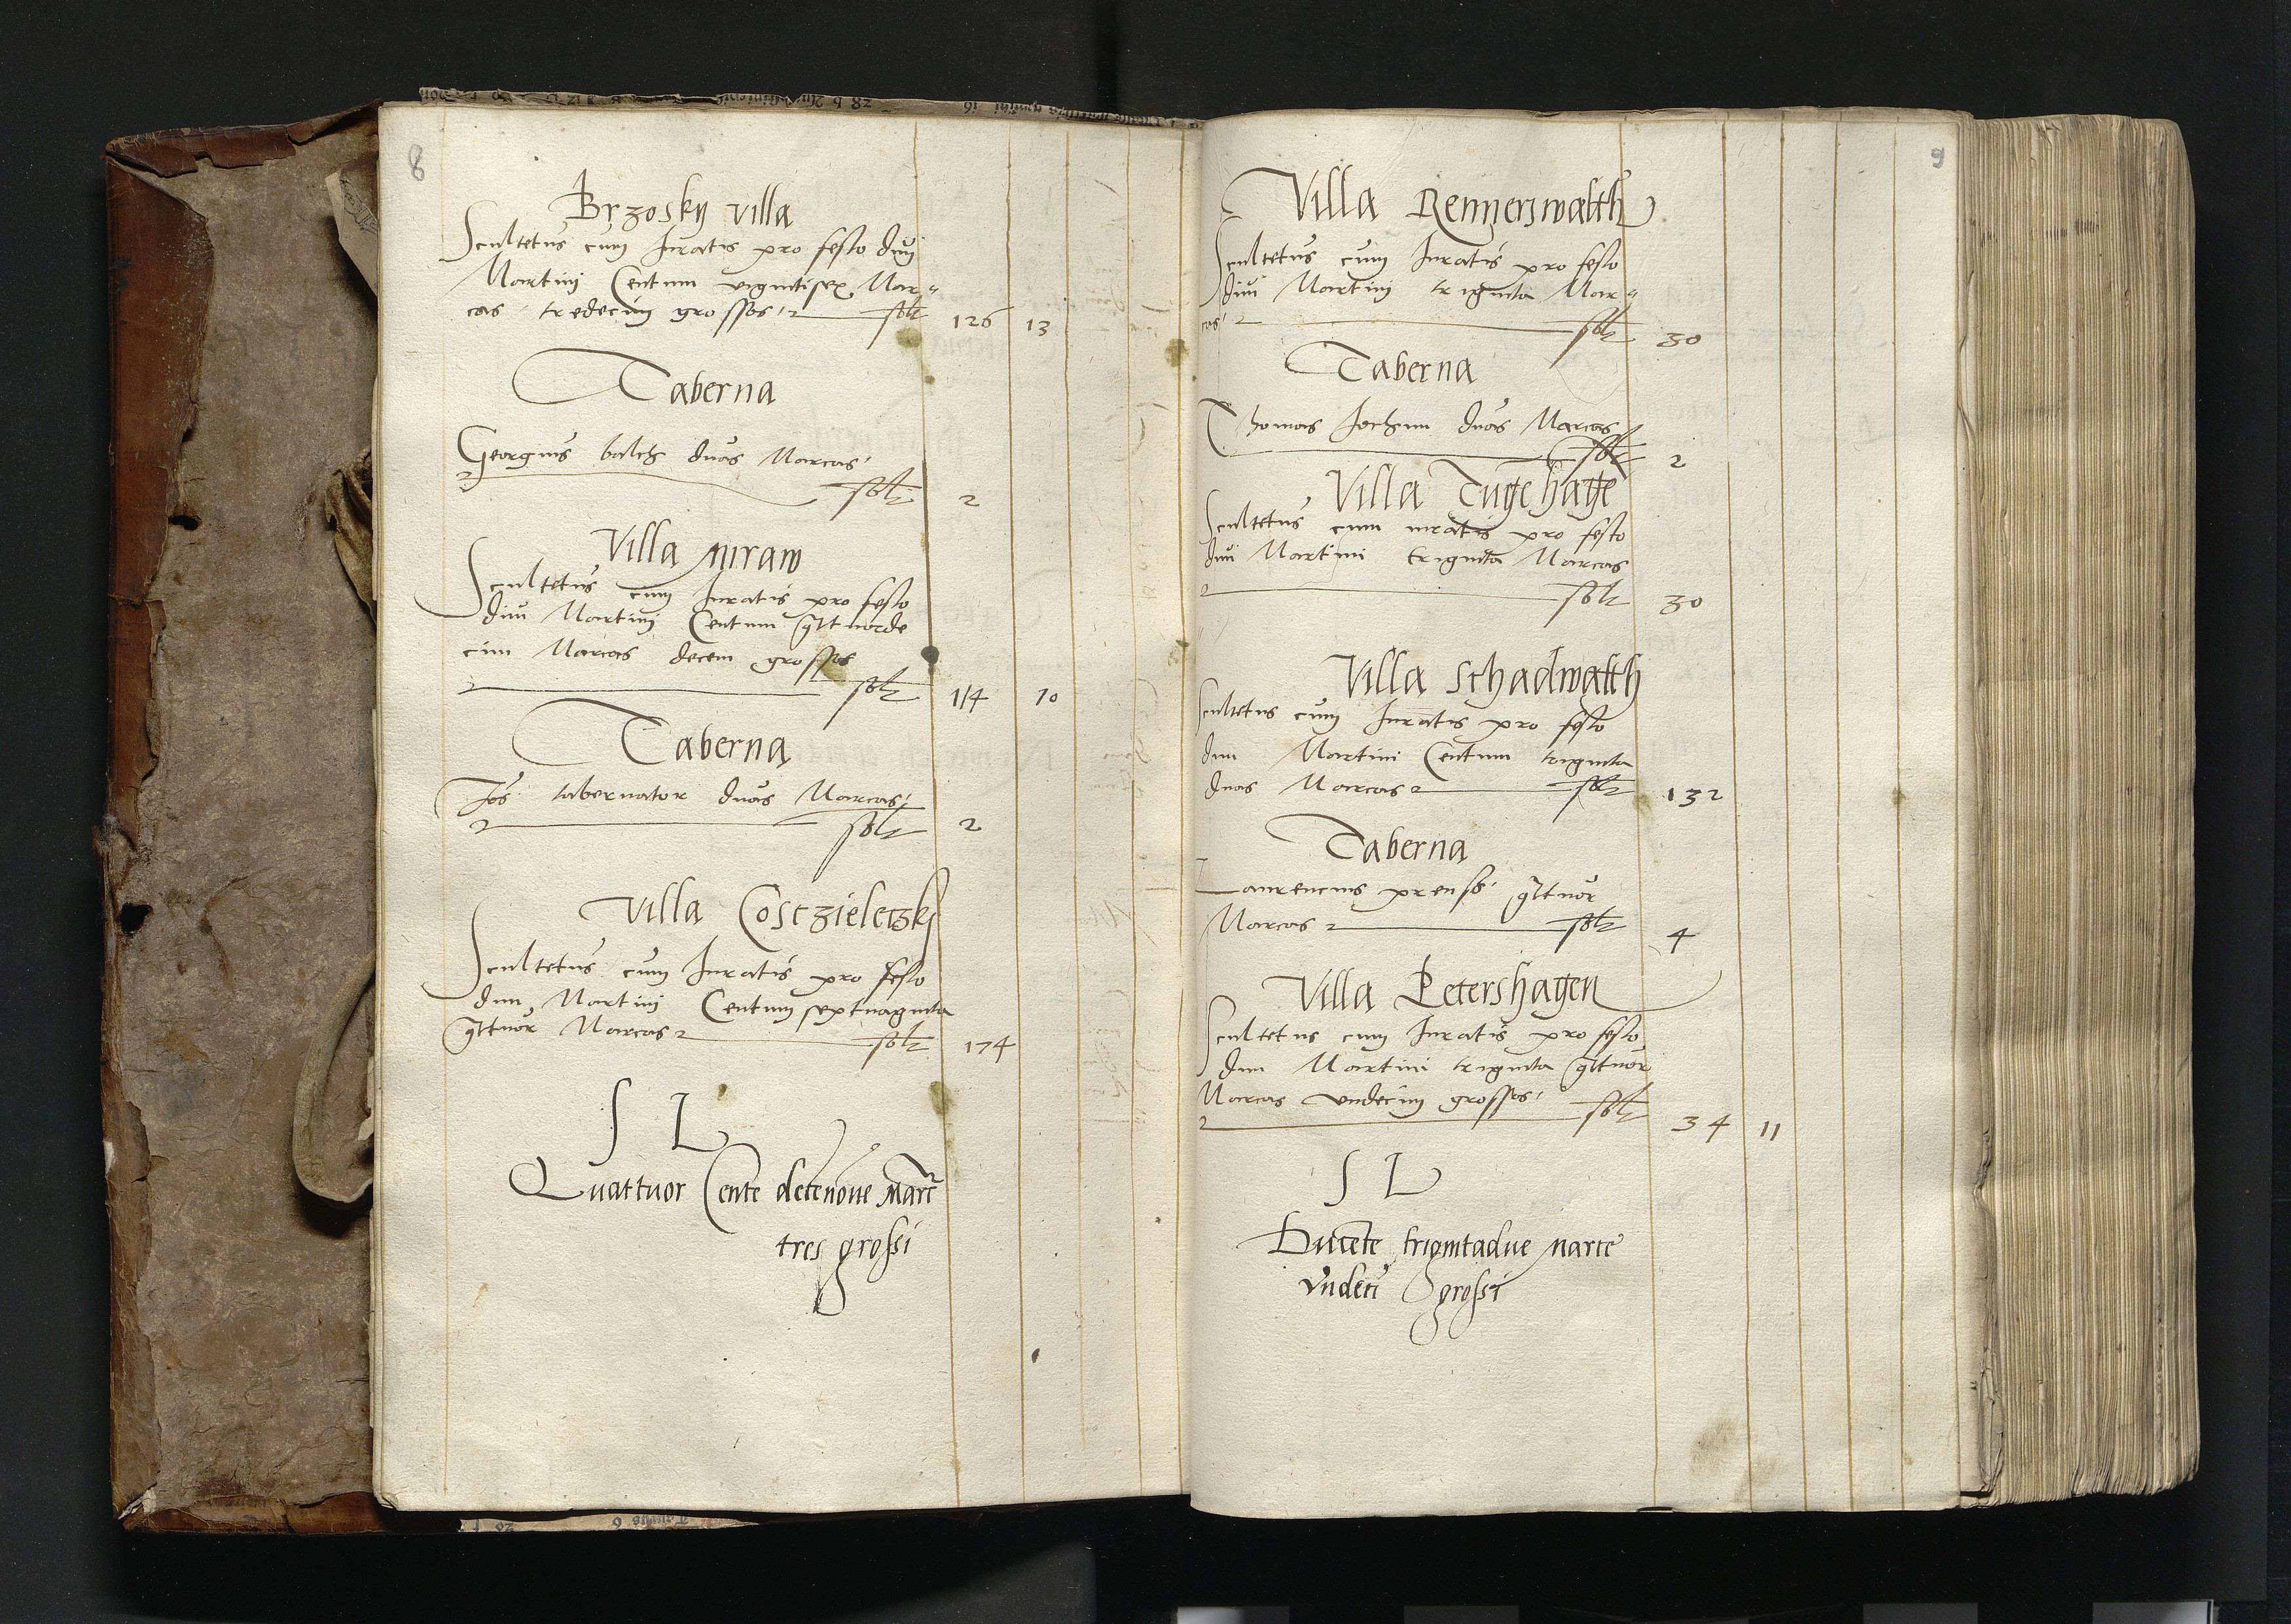 8
Brzosky villa
Scultetus cum Juratis pro festo divi
Martini Centum vigintisex Mar„
cas tredecim grossos solt 126 13
Taberna
Georgius balch duas Marcas
solt 2
Villa niraw
Scultetus cum Juratis pro festo
divi Martini Centum qttuorde
cim Marcas decem grossos
solt 114 10
Taberna
Jos tabernator duas Marcas
solt 2
Villa Costzieletzky
Scultetus cum Juratis pro festo
divi Martini Centum septuaginta
qttuor Marcas solt 174
S L
Quattuor Cente decenove Marc
tres grossi
9
Villa Rennerswalth
Scultetus cum Juratis pro festo
divi Martini triginta Mar„
cas solt 30
Taberna
Thomas Jochim duas Marcas
solt 2
Villa Tugehage
Scultetus cum iuratis pro festo
divi Martini triginta Marcas
solt 30
Villa Schadwalth
Scultetus cum Juratis pro festo
divi Martini Centum triginta
duas Marcas solt 132
Taberna
Laurencius prenss qttuor
Marcas solt 4
Villa Petershagen
Scultetus cum Juratis pro festo
divi Martini triginta qttuor
Marcas undecim grossos solt
34 11
S L
Ducente trigintadue marce
Undeci grossi